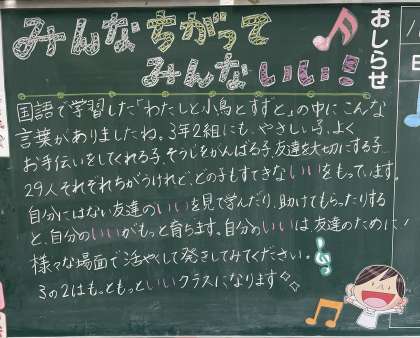 みんなちがって
みんないい!
おしらせ
国語で学習した「わたしと小鳥とすずと」の中にこんな
言葉がありましたね。3年2組にも、やさしい子、よく
お手伝いをしてくれる子、そうじをがんばる子、友達を大切にする子…
29人それぞれちがうけれど、どの子もすてきないいをもっています。
自分にはない友達のいいを見て学んだり、助けてもらったりする
と、自分のいいがもっと育ちます。自分のいいは友達のために、
様々な場面で活やくして発きしてみてください。
3の2はもっともっといいクラスになります